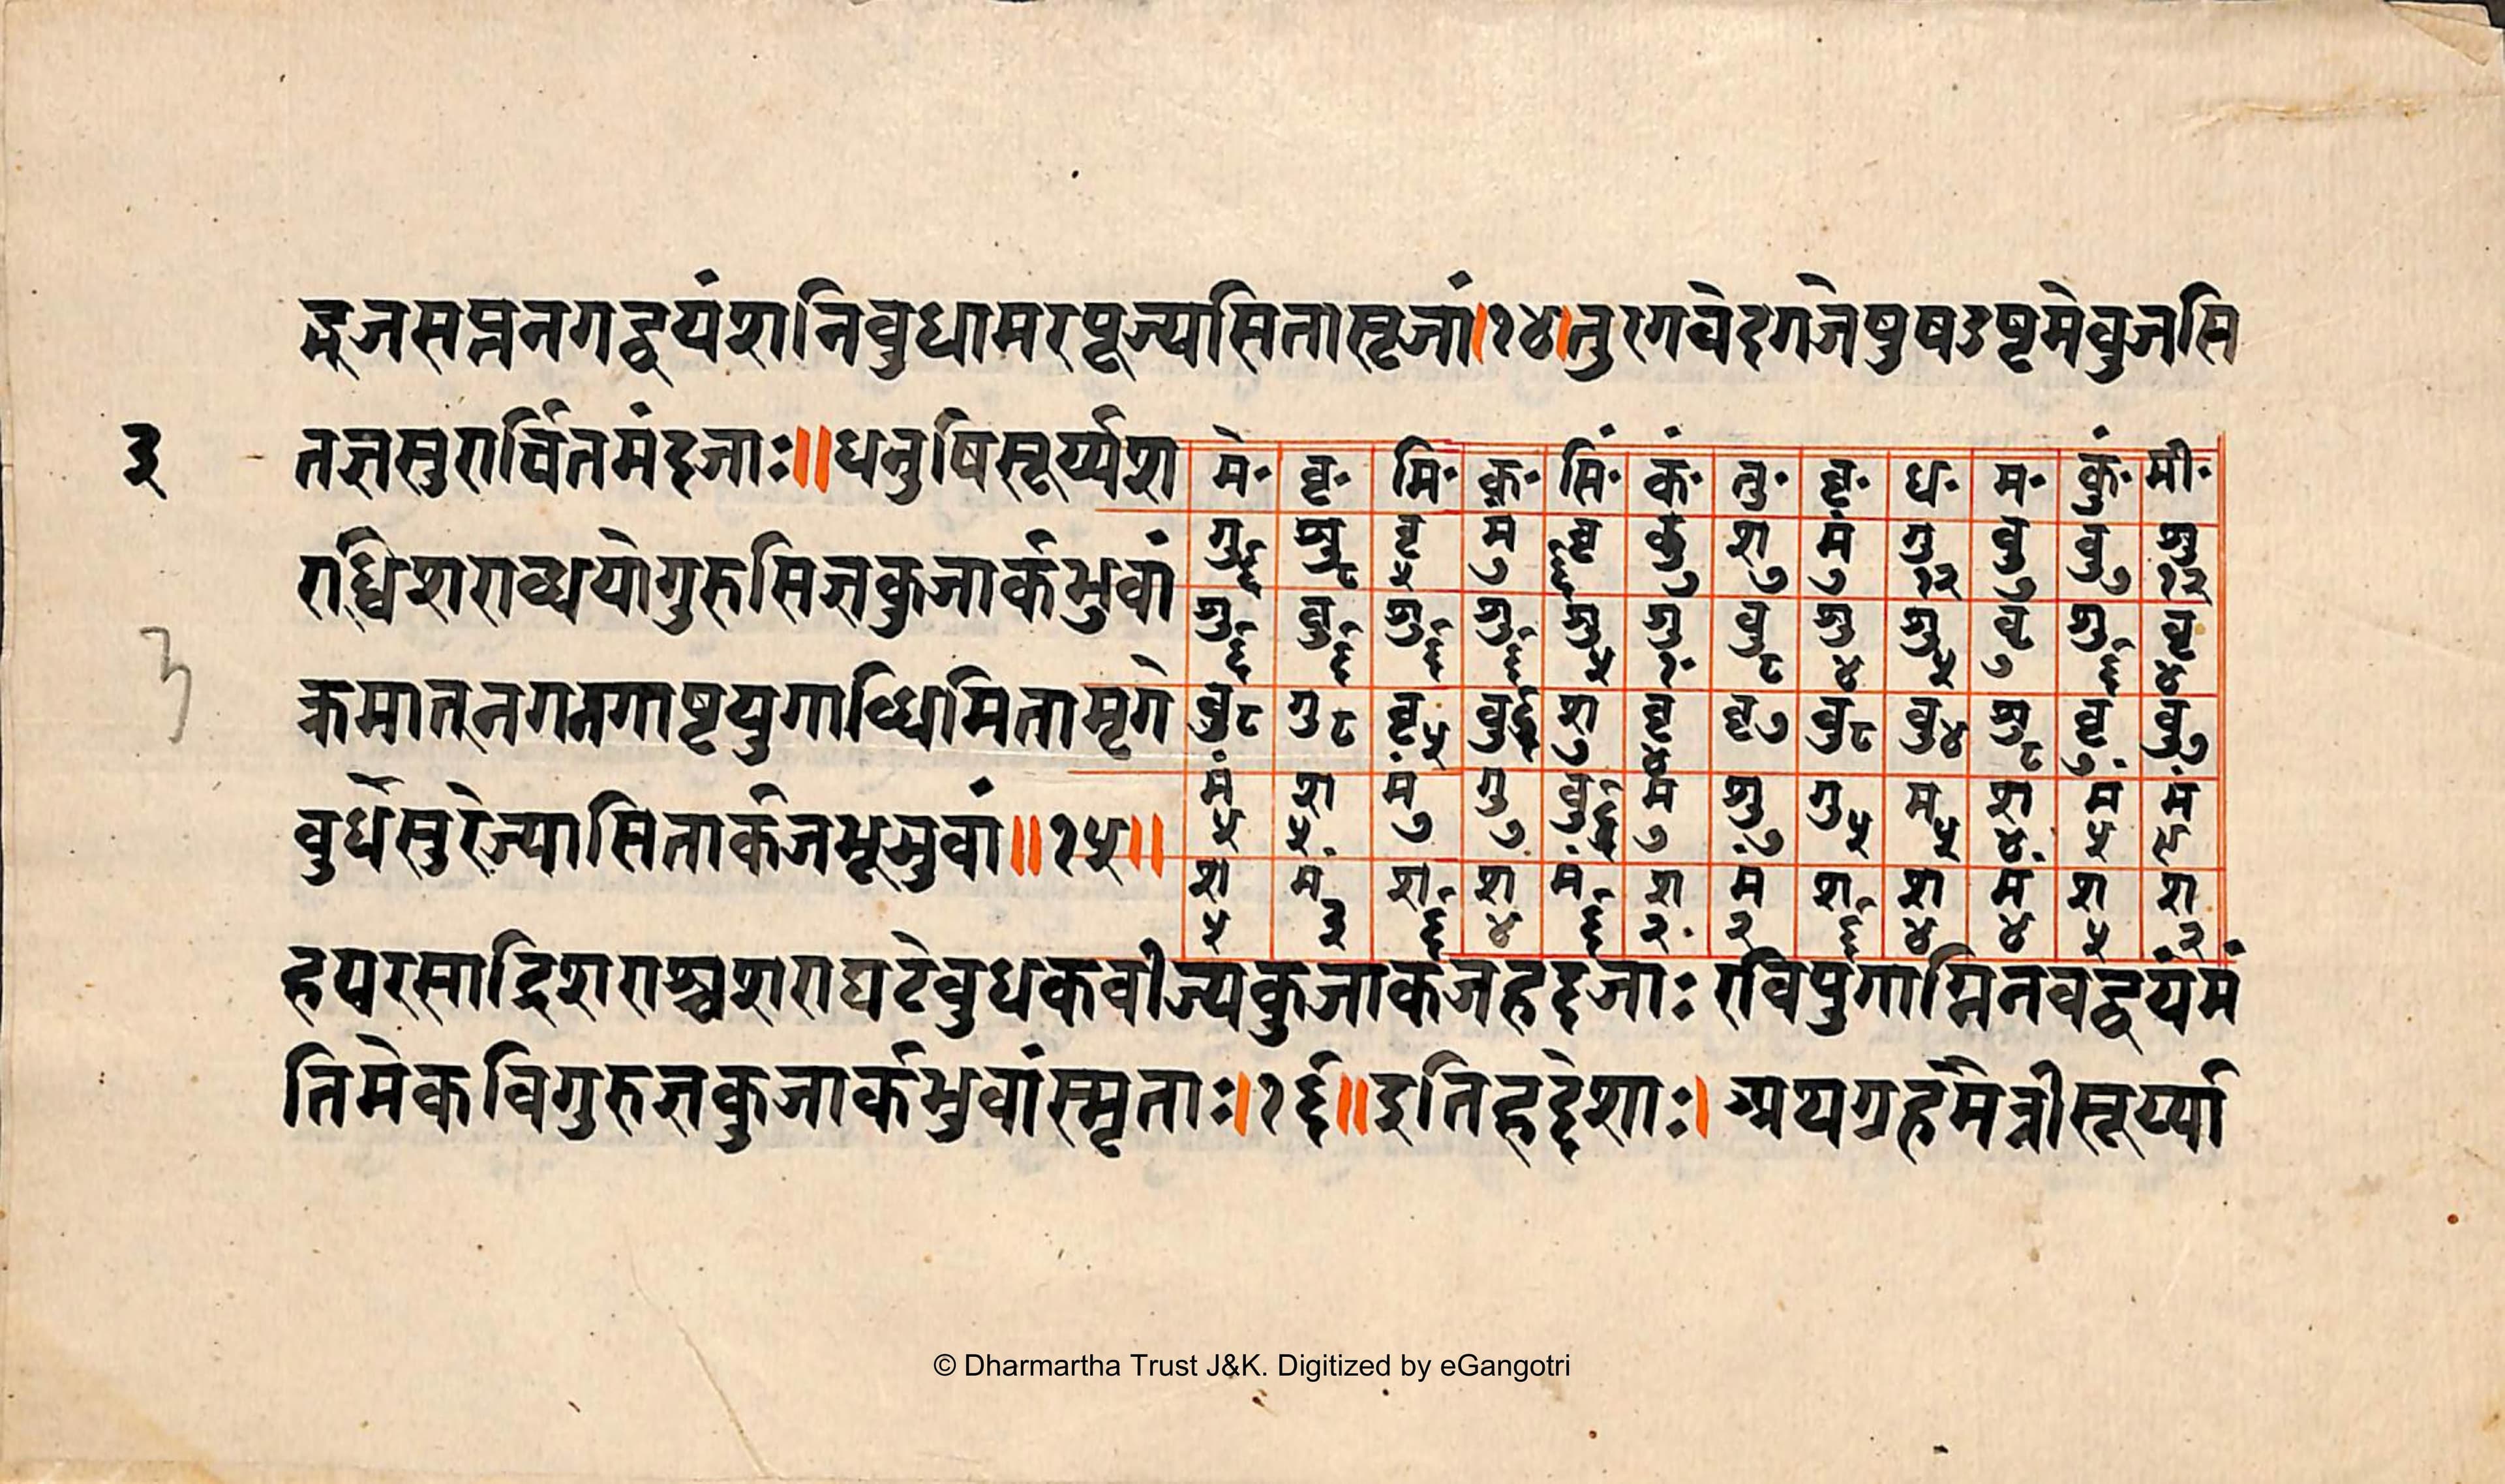 द्भुजसप्तनगद्वयंशनिवुधामरपूज्यसितासृजां।१४।तुरगवेदगजेषुषडष्टमेवुजसि
३
तज्ञसुरार्चितमंदजाः॥धनुषिसूर्य्यश
राब्धिशराब्धयोगुरुसितज्ञकुजार्कभुवां
3
क्रमात्नगनगाष्टयुगाब्धिमितामृगे
वुधसुरेज्यासितार्कजभूसुवां॥१५॥
मे॰ वृ॰ मि॰ क॰ सिं॰ कं॰ तु॰ वृ॰ ध॰ म॰ कुं॰ मी॰
गु६ शु८ वृ५ मं७ वृ६ वु७ श७ मं७ गु१२ वु७ वु७ शु१२
शु६ वु६ शु६ शु६ शु५ शु१॰ वु८ शु४ शु५ वृ७ शु६ वृ४
वु८ गु८ वृ५ वु६ श७ वृ४ वृ७ वु८ वु४ शु८ वृ७ वु७
मं५ श५ मं७ गु७ वु६ मं७ शु७ गु५ मं५ श४ मं५ मं९
श५ मं३ श६ श४ मं६ श२ मं२ श६ श४ मं४ श५ श२
हयरसाद्रिशराश्चशराघटेवुधकवीज्यकुजार्कजहद्दजाः रवियुगाग्निनवद्वयंमं
तिमेकविगुरुज्ञकुजार्कभुवांस्मृताः।१६॥इतिहद्देशाः। अथग्रहमैत्रीसूर्य्या
© Dharmartha Trust J&K. Digitized by eGangotri